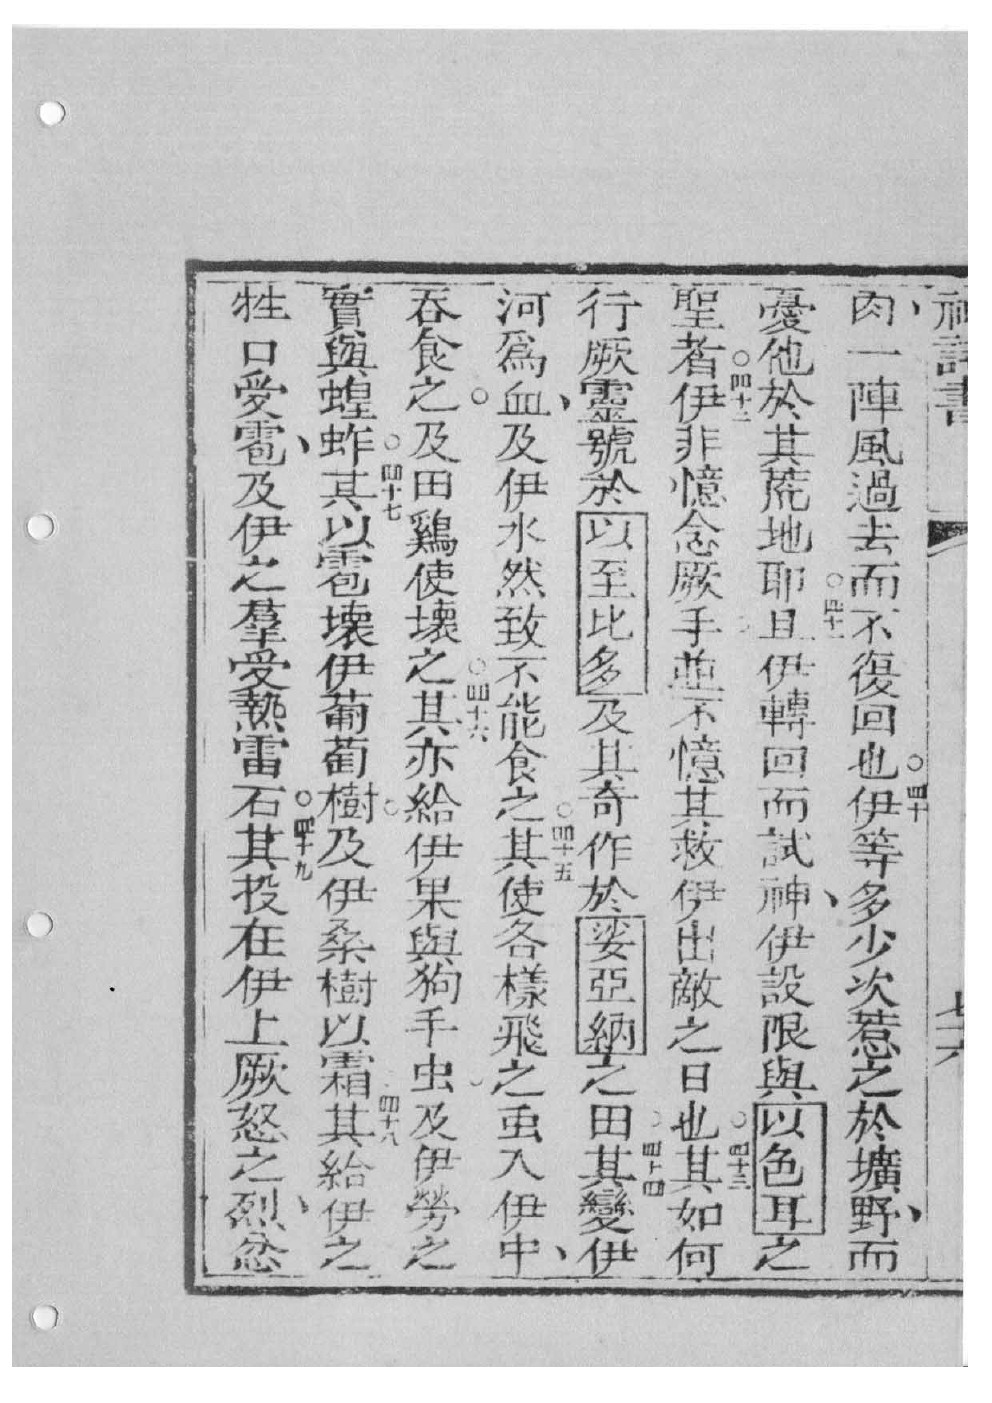 神詩書 七六
肉、一陣風過去而不復回也○四十伊等多少次惹之於壙野、而
憂他於其荒地耶○四十一且伊轉回而試神、伊設限與以色耳之
聖者○四十二伊非憶念厥手並不憶其救伊出敵之日也○四十三其如何
行厥靈號於以至比多及其奇作於娑亞納之田○四十四其變伊
河爲血、及伊水然致不能食之○四十五其使各樣飛之虫入伊中、
吞食之○及田鷄使壞之○四十六其亦給伊果與狗手虫○及伊勞之
實與蝗蚱○四十七其以雹壞伊葡萄樹○及伊桑樹以霜○四十八其給伊之
牲口受雹、及伊之羣受熱雷石○四十九其投在伊上厥怒之烈、忿